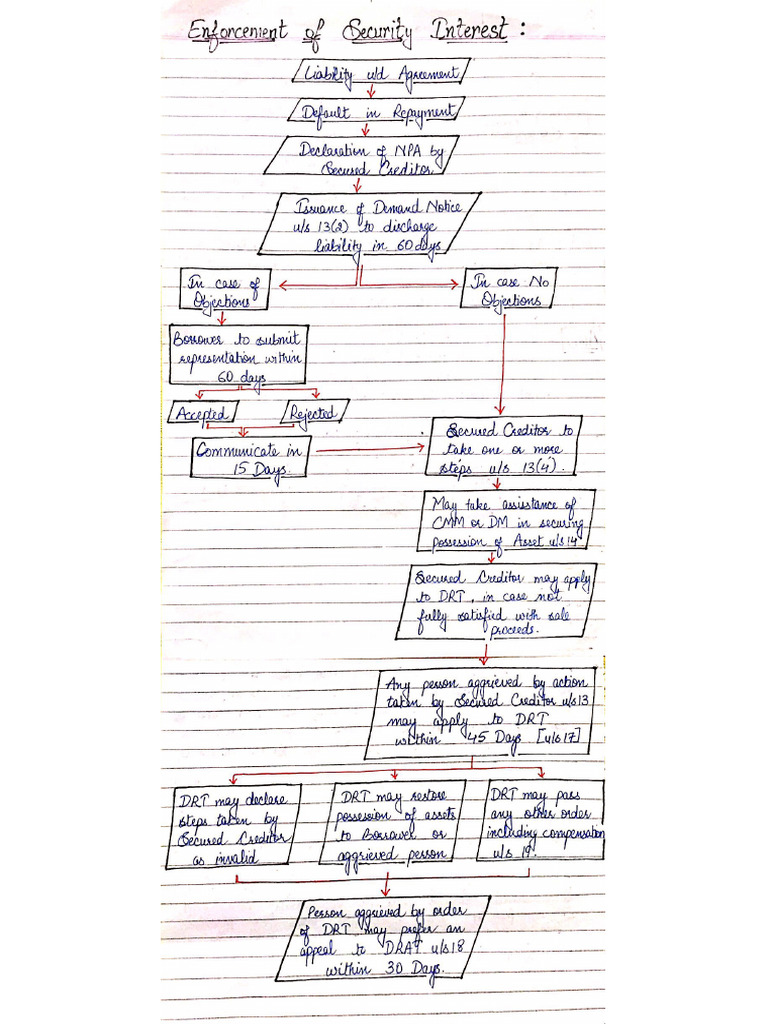 Enforcement of Security Interest :
Liability u/d Agreement
Default in Repayment
Declaration of NPA by
Secured Creditor
Issuance of Demand Notice
u/s 13(2) to discharge
liability in 60 days
In case of
Objections
In case No
Objections
Borrower to submit
representation within
60 days
Accepted
Rejected
Communicate in
15 Days.
Secured Creditor to
take one or more
steps u/s 13(4).
May take assistance of
CMM or DM in securing
possession of Asset u/s 14
Secured Creditor may apply
to DRT, in case not
fully satisfied with sale
proceeds.
Any person aggrieved by action
taken by Secured Creditor u/s 13
may apply to DRT
within 45 Days [u/s 17]
DRT may declare
steps taken by
Secured Creditor
as invalid
DRT may restore
possession of assets
to Borrower or
aggrieved person
DRT may pass
any other order
including compensation
u/s 19.
Person aggrieved by order
of DRT may prefer an
appeal to DRAT u/s 18
within 30 Days.